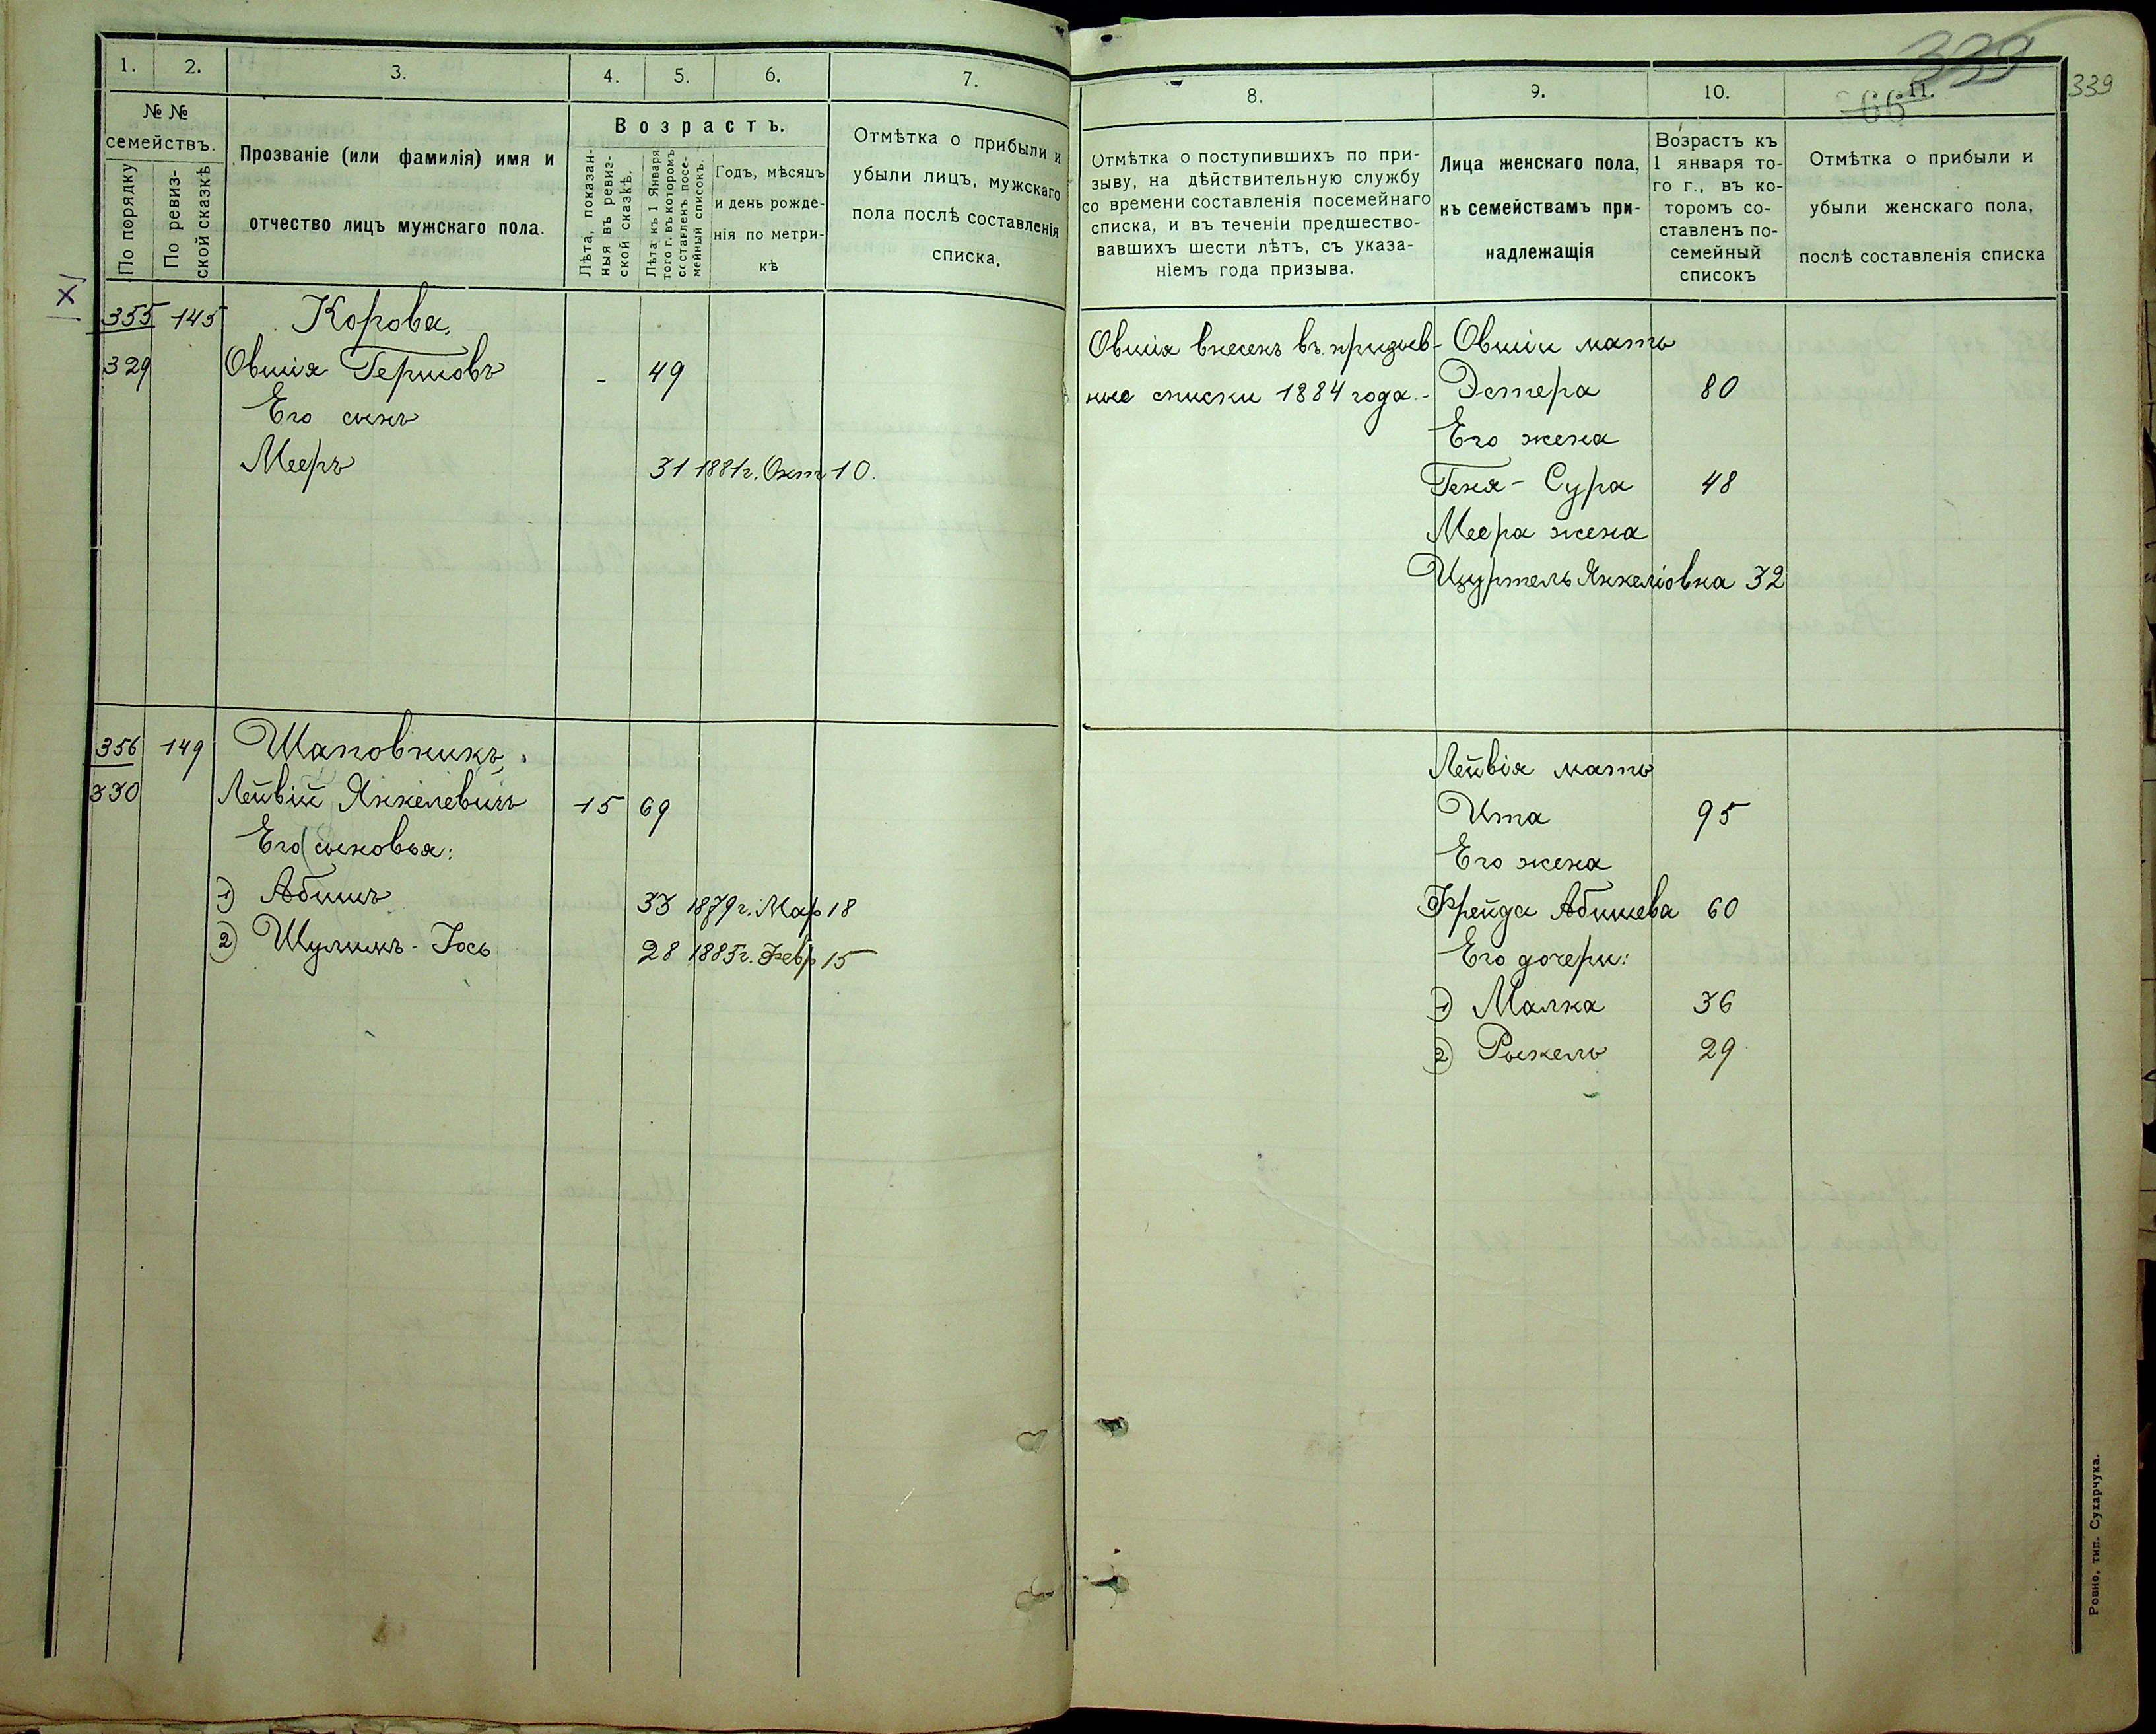 339
339
66
1. 2. 3. 4. 5. 6. 7.
№ №
семействъ.
По порядку
По ревиз-
ской сказкѣ
Прозваніе (или фамилія) имя и
отчество лицъ мужскаго пола.
Возрастъ.
Лѣта, показан-
ныя въ ревиз-
ской сказкѣ.
Лѣта къ 1 Января
того г. въ которомъ
составленъ посе-
мейный списокъ.
Годъ, мѣсяцъ
и день рожде-
нія по метри-
кѣ
Отмѣтка о прибыли и
убыли лицъ, мужскаго
пола послѣ составленія
списка.
X
355 145 Корова.
329 Овшія Гершовъ - 49
Его сынъ
Мееръ 31 1881г. Окт 10.
356 149 Шаповникъ.
330 Лейвій Янкелевичъ 15 69
Его сыновья:
1) Абишъ 33 1879г. Мар 18
2) Шулимъ-Іось 28 1885г. Февр 15
8. 9. 10. 11.
Отмѣтка о поступившихъ по при-
зыву, на дѣйствительную службу
со времени составленія посемейнаго
списка, и въ теченіи предшество-
вавшихъ шести лѣтъ, съ указа-
ніемъ года призыва.
Лица женскаго пола,
къ семействамъ при-
надлежащія
Возрастъ къ
1 января то-
го г., въ ко-
торомъ со-
ставленъ по-
семейный
списокъ
Отмѣтка о прибыли и
убыли женскаго пола,
послѣ составленія списка
Овшія внесенъ въ призыв- Овшіи мать
ные списки 1884 года.- Эстера 80
Его жена
Геня-Сура 48
Меера жена
Цуртель Янкеліовна 32
Лейвія мать
Ита 95
Его жена
Фрейда Абишева 60
Его дочери:
1) Малка 36
2) Рыкель 29
Ровно, тип. Сухарчука.